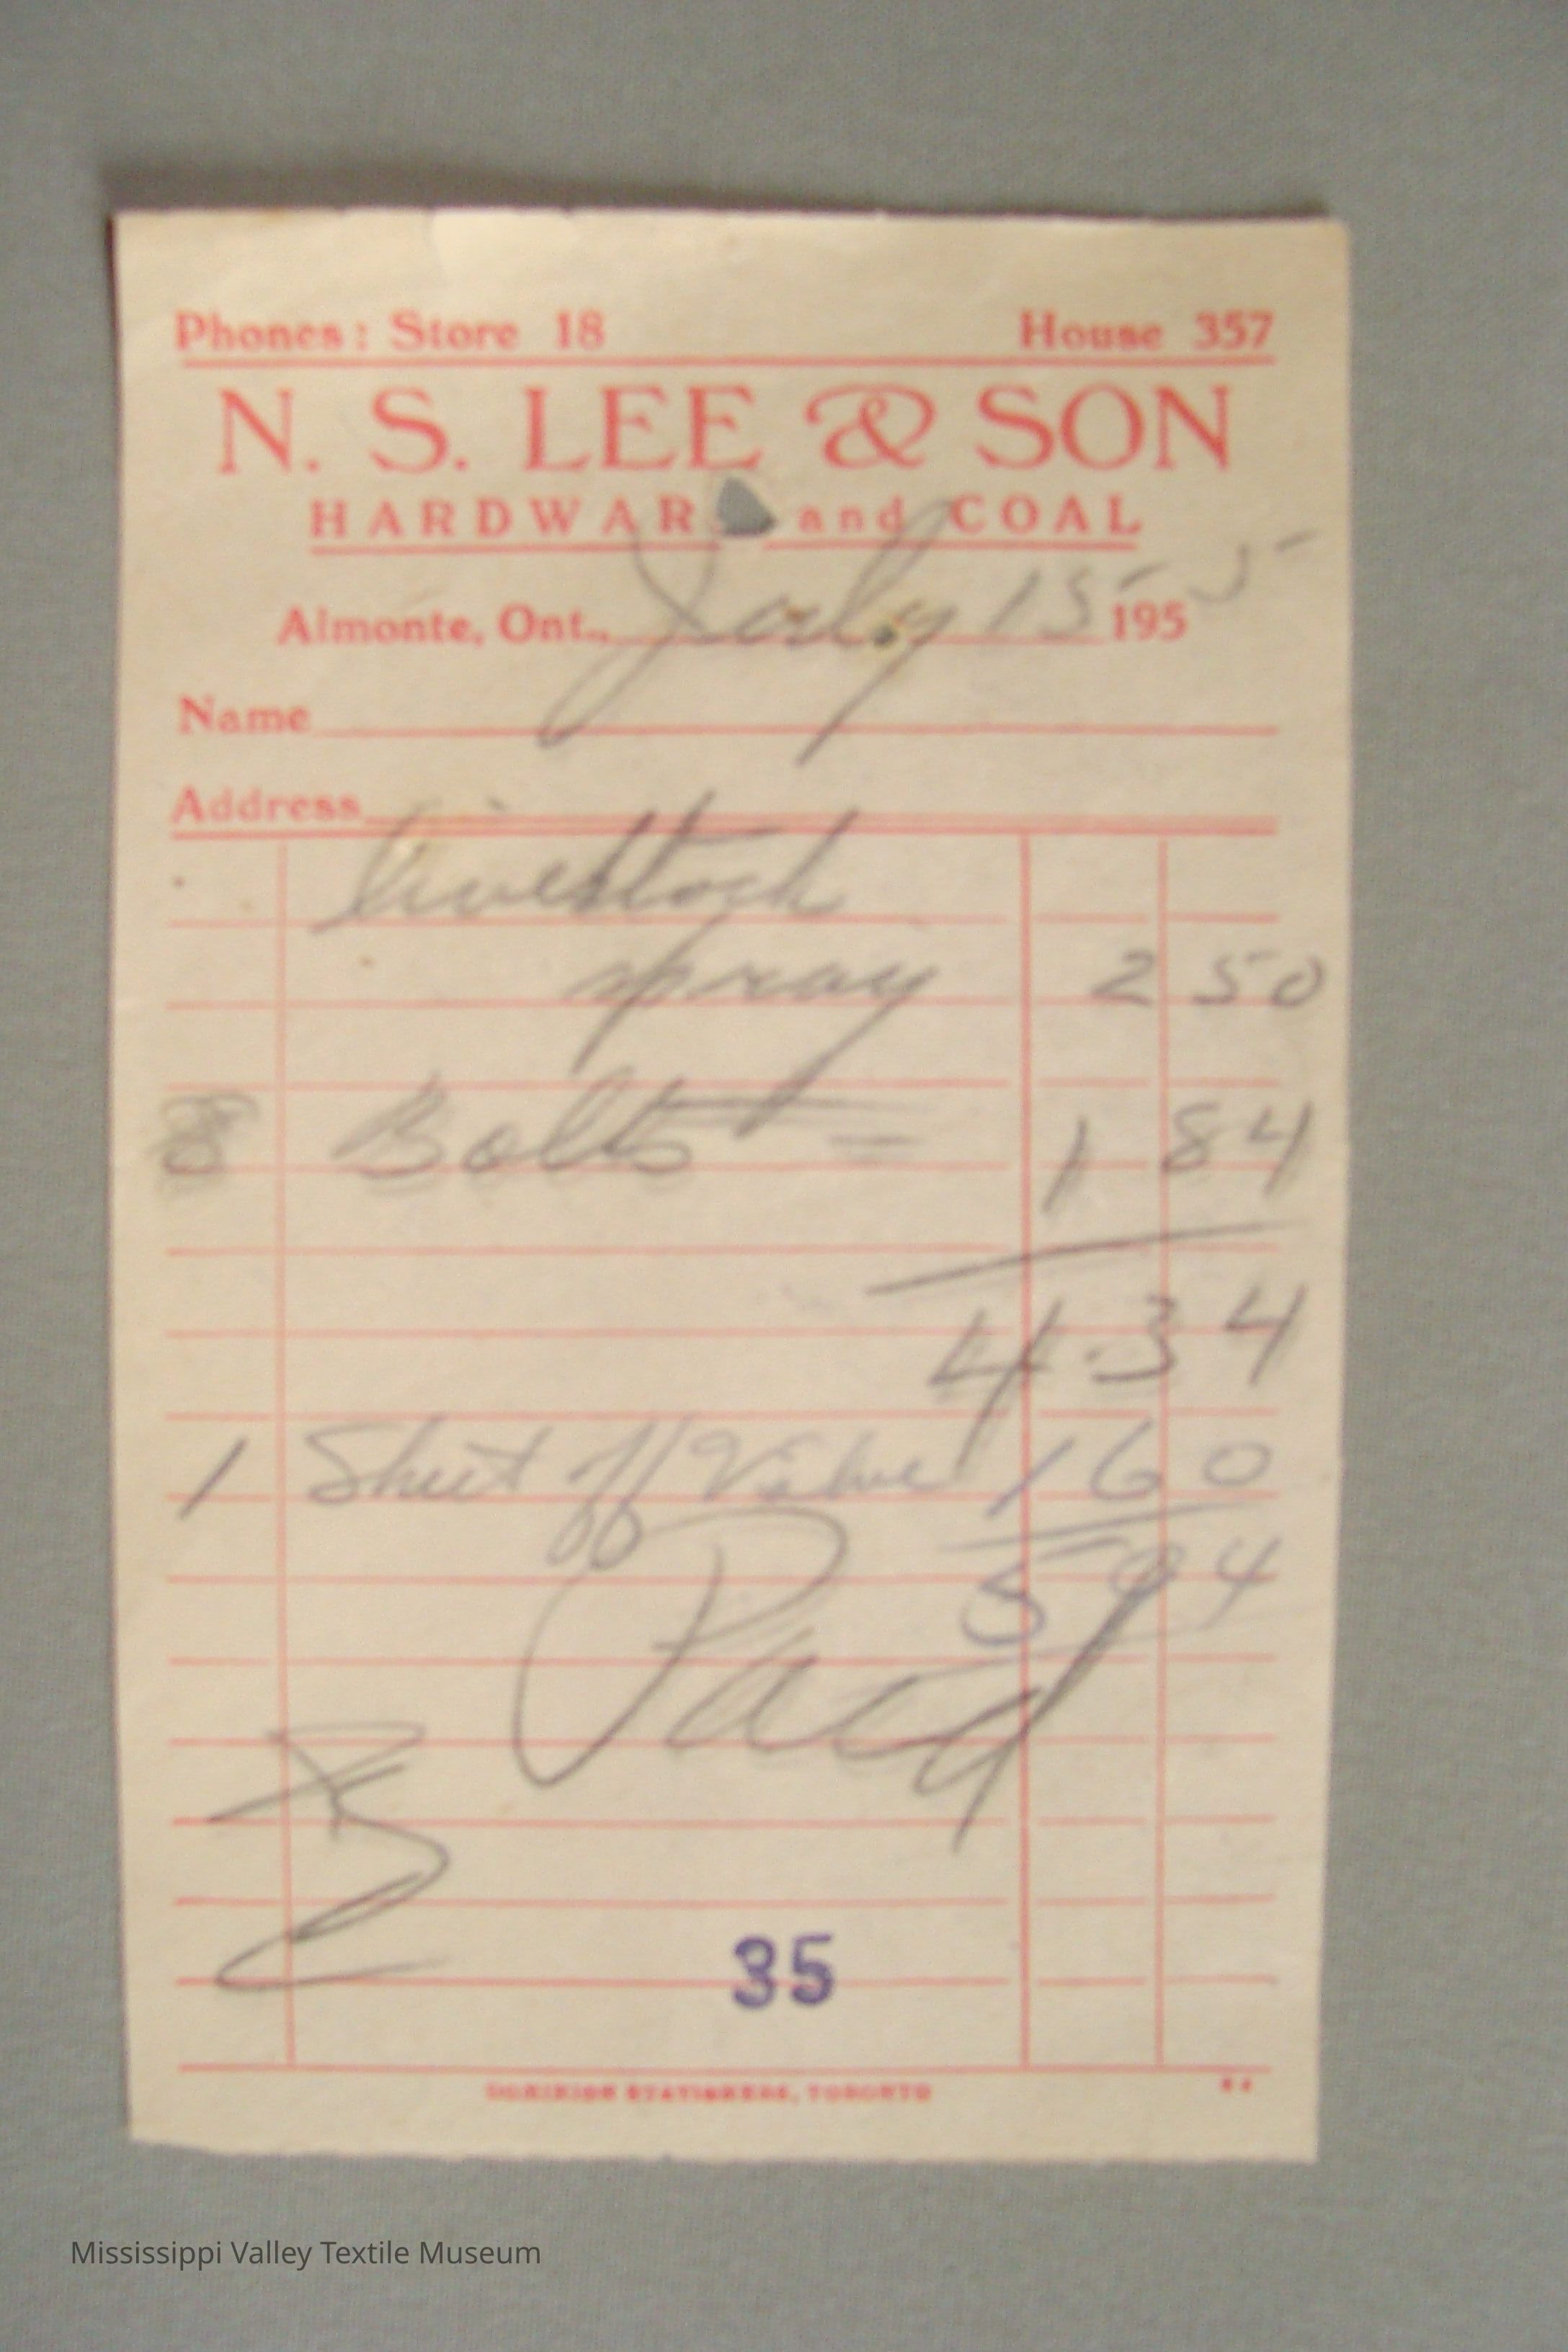 Phones: Store 18 House 357
N. S. LEE & SON
HARDWAR and COAL
Almonte, Ont., July 15 1955
Name
Address
livestock
spray 2 50
8 Bolts = 1 84
4.34
1 Shut off Valve 1 60
5 94
Paid
35
DOMINION STATIONERS, TORONTO
Mississippi Valley Textile Museum